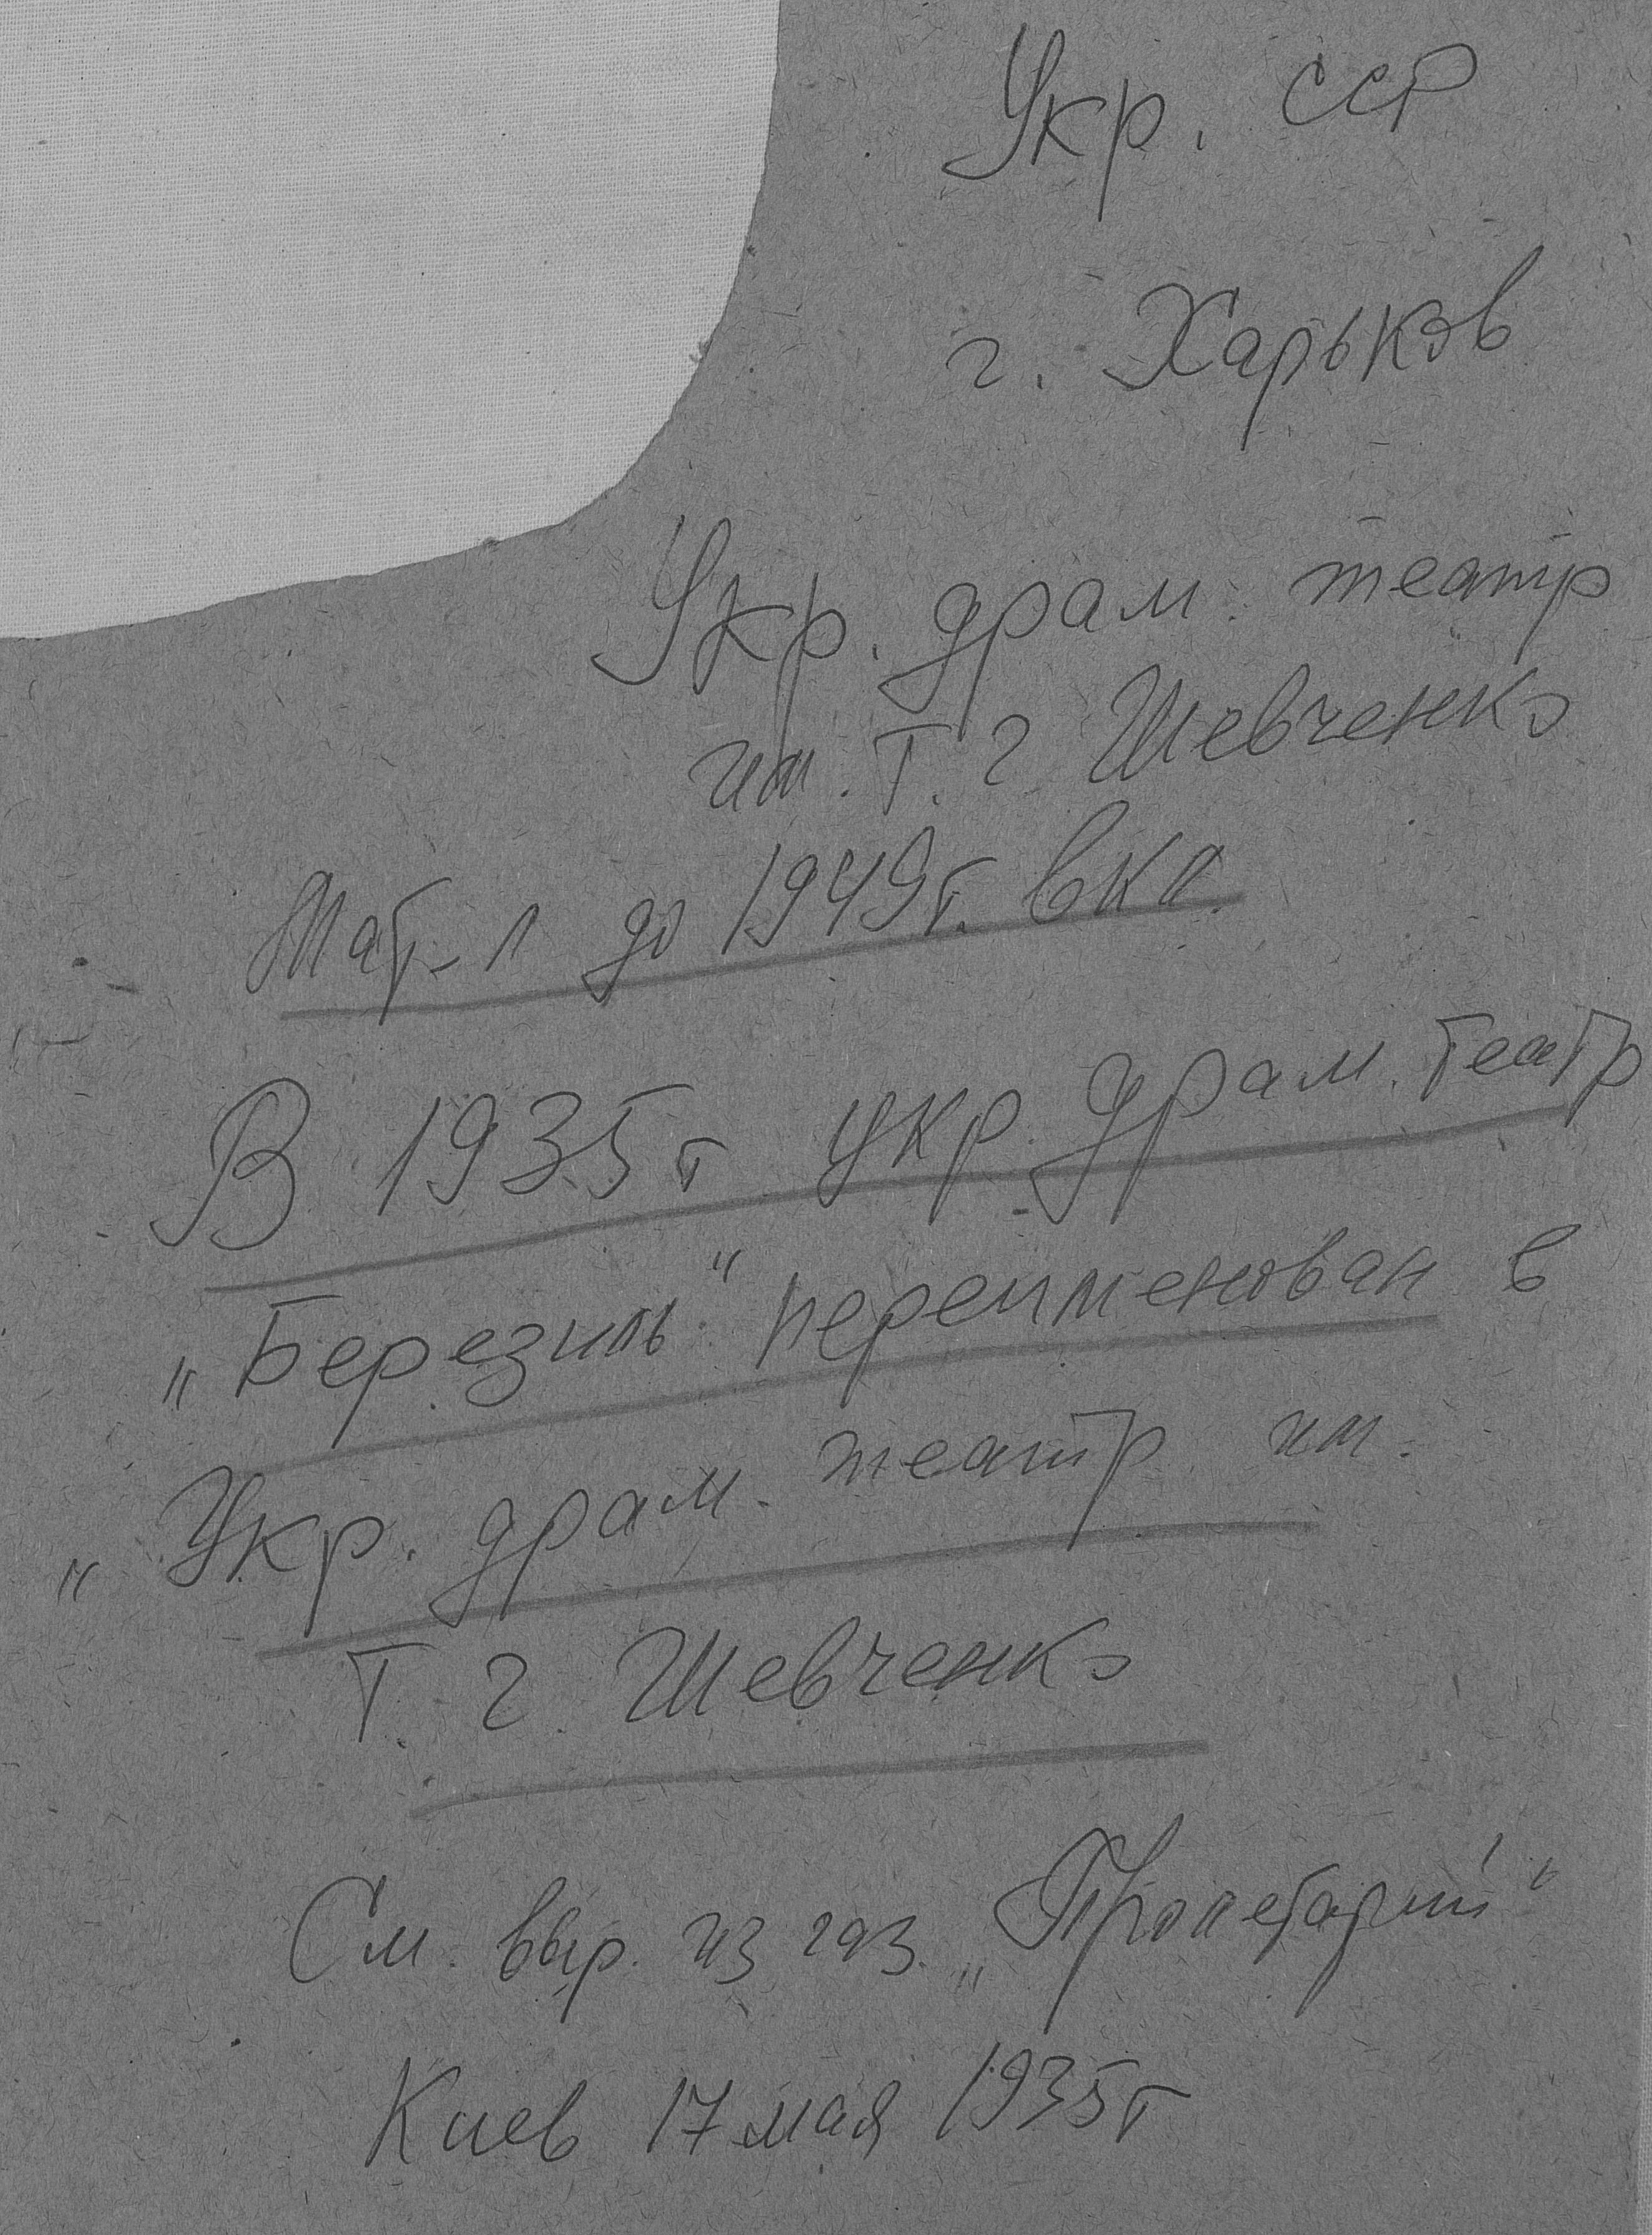 Укр. ССР
г. Харьков
Укр. драм. театр
им. Т. Г. Шевченко
Мат-л до 1949г. вкл.
В 1935г укр. драм. театр
„Березиль“ переименован в
„Укр. драм. театр им.
Т. Г. Шевченко
См. выр. из газ. „Пролетарий“
Киев 17 мая 1935г